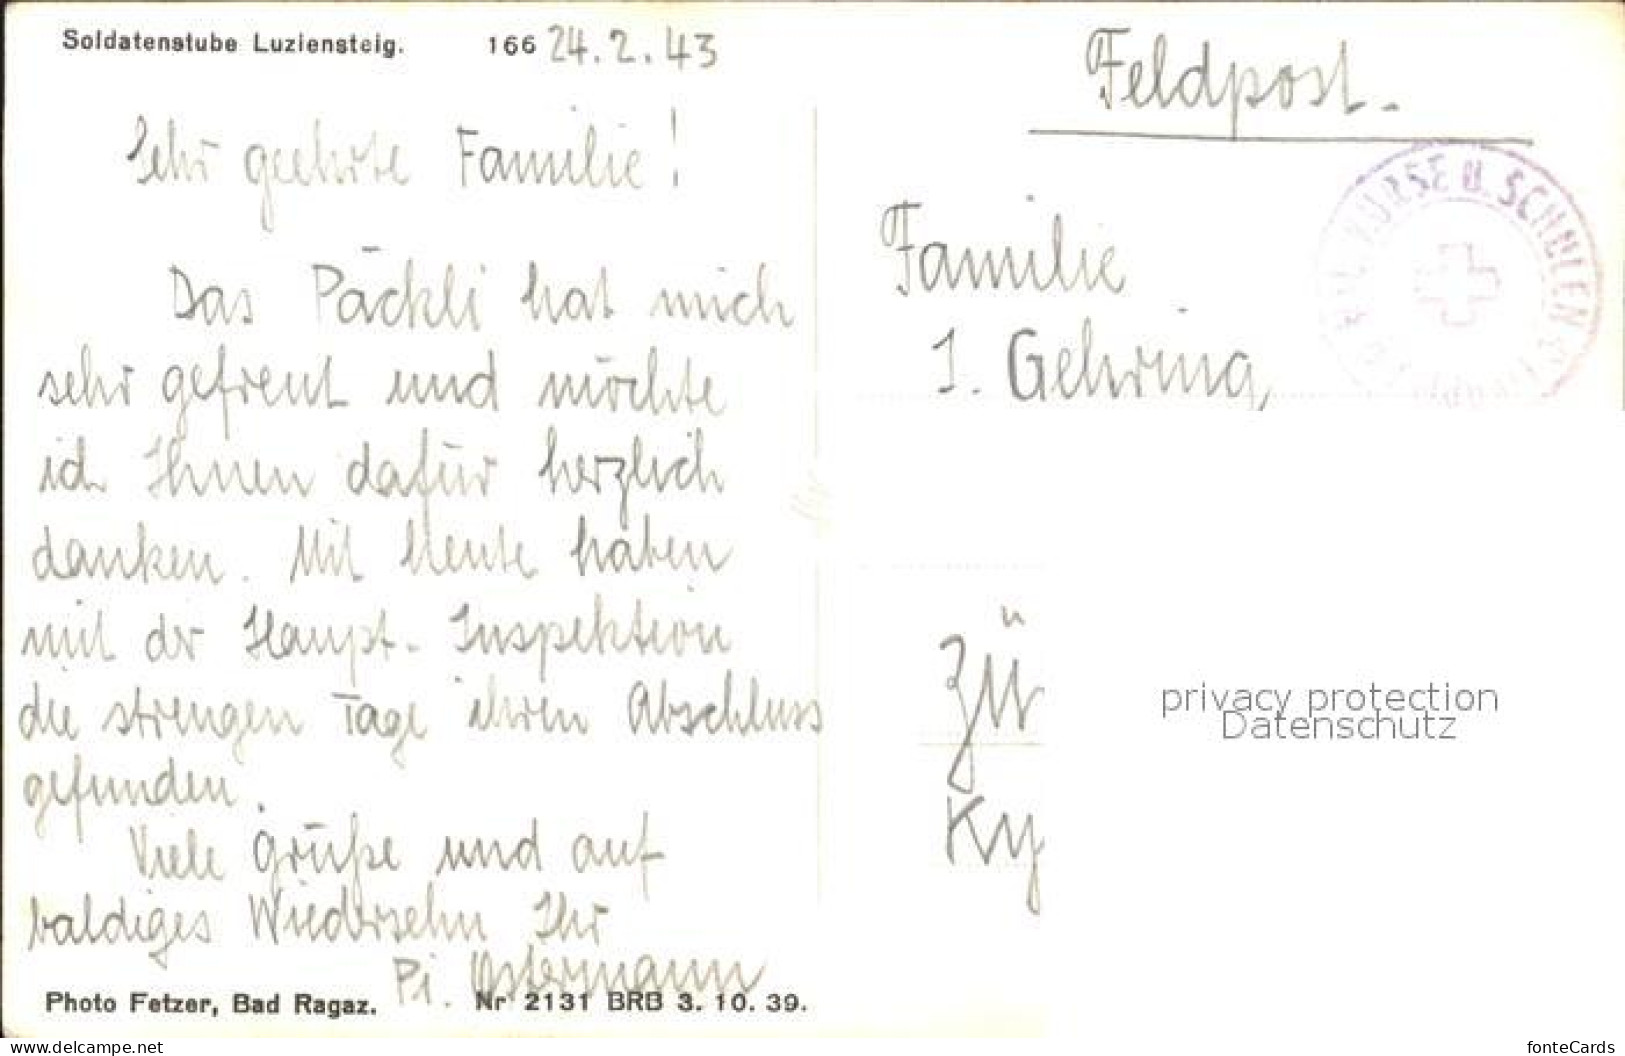 Soldatenstube Luziensteig. 166 24.2.43
Sehr geehrte Familie!
Das Päckli hat mich
sehr gefreut und möchte
ich Ihnen dafür herzlich
danken. Mit Heute haben
mit der Haupt-Inspektion
die strengen Tage ihren Abschluss
gefunden.
Viele Grüße und auf
baldiges Wiedersehn Ihr
Pi. Ostermann
Photo Fetzer, Bad Ragaz. Nr 2131 BRB 3. 10. 39.
Feldpost.
KURSE U. SCHULEN
Familie
J. Gehring,
Zü
Ky
privacy protection
Datenschutz
www.delcampe.net
fonteCards